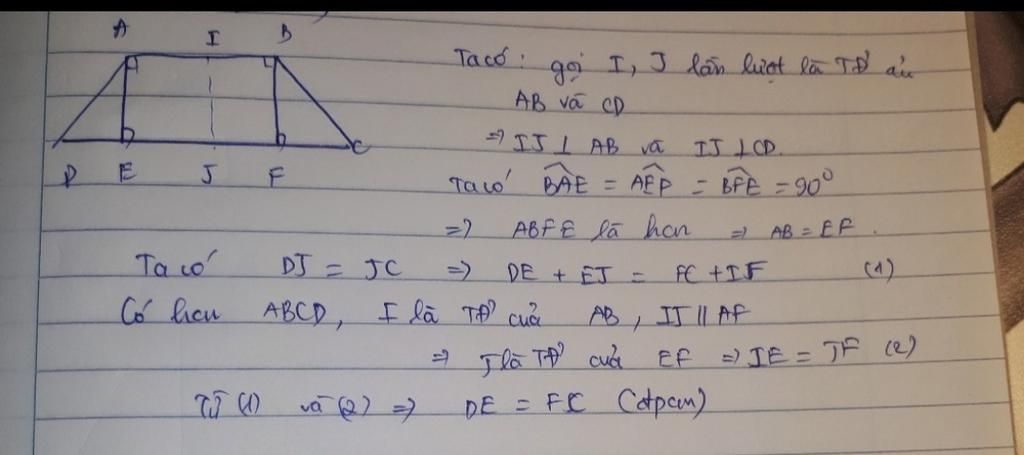 A I B
D E J F C
Ta có: gọi I, J lần lượt là TĐ của
AB và CD
=> IJ ⊥ AB và IJ ⊥ CD.
Ta có BAE = AEF = BFE = 90°
=> ABFE là hcn => AB = EF.
Ta có DJ = JC => DE + EJ = FC + JF (1)
Có hcn ABCD, I là TĐ của AB, IJ || AF
=> J là TĐ của EF => JE = JF (2)
Từ (1) và (2) => DE = FC (đpcm)